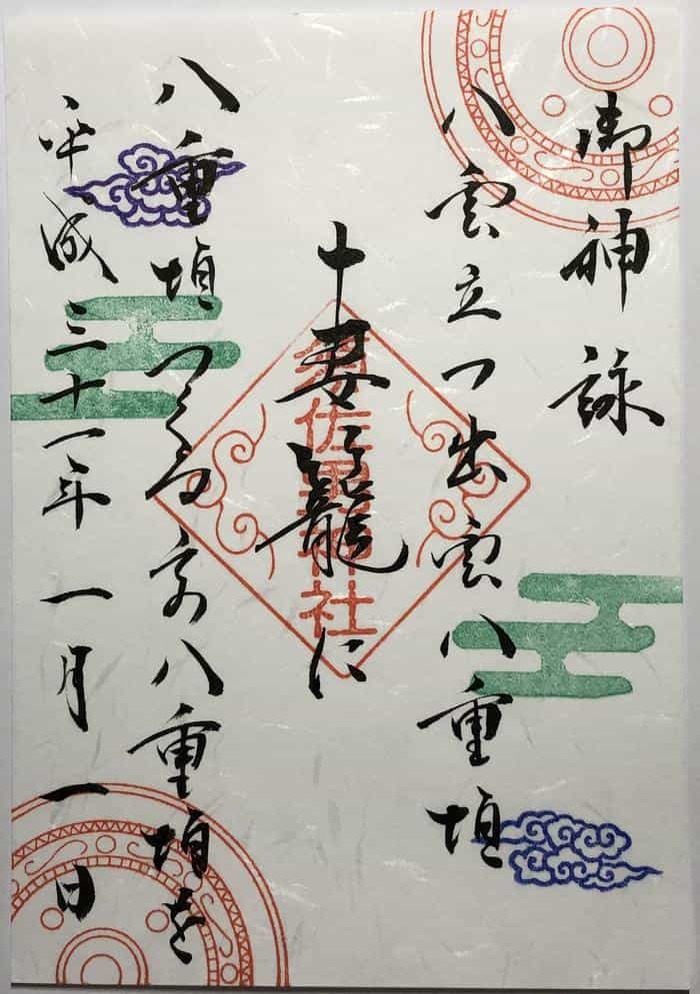 御神詠
八雲立つ出雲八重垣
妻籠に
須佐男神社
八重垣つくるその八重垣を
平成三十一年一月一日